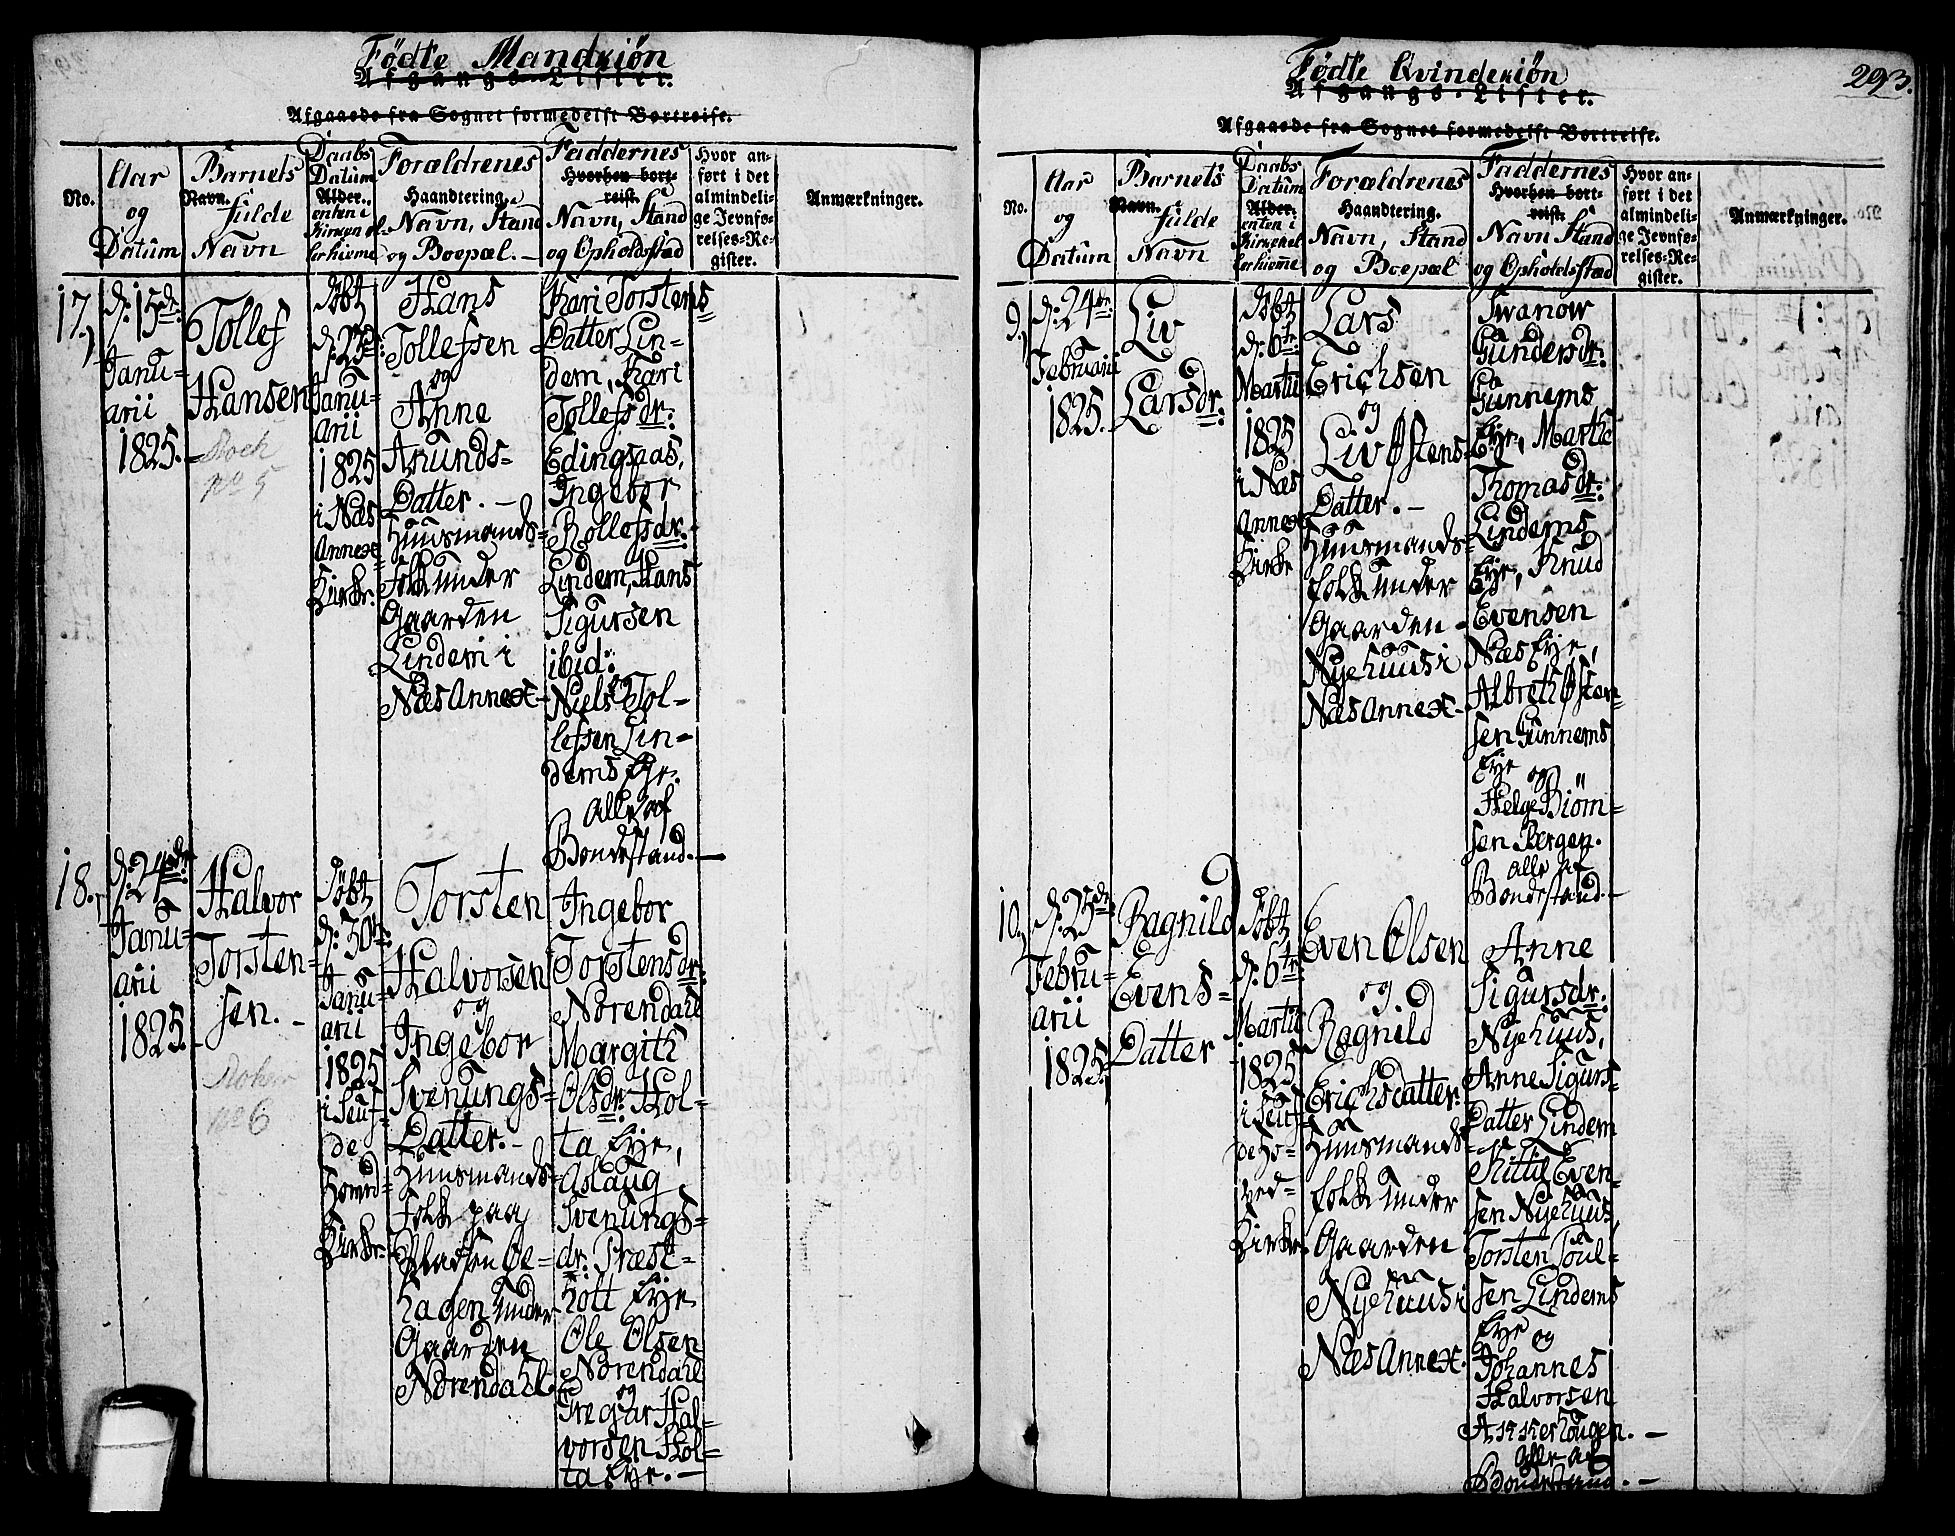 Födte Mandkiön
Afgangs-Lister.
Afgaaede fra Sognet formedelst Bortreise.
No.
Aar
og
Datum
Barnets
Navn.
fulde
Navn
Daabs
Datum
Alder.
enten i
Kirken el.
ler hieme
Forældrenes
Haandtering.
Navn, Stand
og Boepæl.
Faddernes
Hvorhen bort-
reist.
Navn, Stand
og Opholdsstæd
Hvor an-
ført i det
almindeli-
ge Jevnfø-
relses-Re-
gister.
Anmærkninger.
17.
d: 15de
Janu-
arii
1825.
Tollef
Hansen
No 5
Döbt
Janu-
arii
1825
i Næs
Annex
Kirke.
Hans
Tollefsen
og
Anne
Aanunds-
Datter. -
Huusmands-
folk under
Gaarden
Lindem i
Næs Annex -
Kari Torstens
Datter Lin-
dem, Kari
Tollefsdr:
Edingsaas,
Ingebor
Rollefsdr:
Lindem, Hans
Sigursen
ibid:
og
Niels Tol-
lefsen Lin-
dems Eje.
Alle af
Bondestand. -
18.
d: 24de
Janu-
arii
1825.
Halvor
Torsten-
sen. -
No 6
Döbt
d: 30te
Janu-
arii
1825
i Seuf-
de
Hoved-
Kirke.
Torsten
Halvorsen
og
Ingebor
Svenungs-
Datter. -
Huusmands-
Folk paa
Pladsen Be-
hagen under
Gaarden
Norendahl.
Ingebor
Torstensdr:
Norendahl
Margith
Olsdr: Hol-
ta Eje,
Aslaug
Svenungs-
dr: Præst-
holt Eje
Ole Olsen
Norendahl
og
Tregar Hal-
vorsen Hol-
ta Eje. -
Födte Qvindekiön
293.
Afgangs-Lister.
Afgaaede fra Sognet formedelst Bortreise.
No.
Aar
og
Datum
Barnets
Navn.
fulde
Navn
Daabs
Datum
Alder.
enten i
Kirken el
ler hieme
Forældrenes
Haandtering.
Navn, Stand
og Boepæl
Faddernes
Hvorhen bort-
reist.
Navn Stand
og Opholdsstæd
Hvor an-
ført i det
almindeli-
ge Jevnfø-
relses-Re-
gister.
Anmærkninger.
9.
d: 24de
Februarii
1825.
Liv
Larsdr:
Döbt
d: 6te
Martii
1825
i Næs
Annex
Kirke
Lars
Erichsen
og
Liv Østens-
Datter. -
Huusmands-
folk under
Gaarden -
Nyehuus i
Næs Annex -
Svanow
Gundersdr:
Gunnems
Eje, Marthe
Thomasdr:
Lindems
Eje, Knud
Evensen
Næs Eje,
Albreth Østen-
sen Gunnems
Eje
og
Helge Biörn-
sen Bergen.
Alle af
Bondestand. -
10.
d: 25de
Febru-
arii
1825.
Ragnild
Evens-
Datter
Döbt
d: 6te
Martii
1825
i Seuf-
de Ho-
ved-
Kirke.
Even Olsen
og
Ragnild
Erichsdatter.
Huusmands-
folk under
Gaarden
Nyehuus i
Næs Annex.
Anne
Sigursdr:
Nyehuus,
Anne Sigurs-
Datter Lindem
Kittil Even-
sen Nyehuus,
Torsten Poul-
sen Lindems
Eje og
Johannes
Halvorsen
Askerhougen. -
Alle af
Bondestand. -